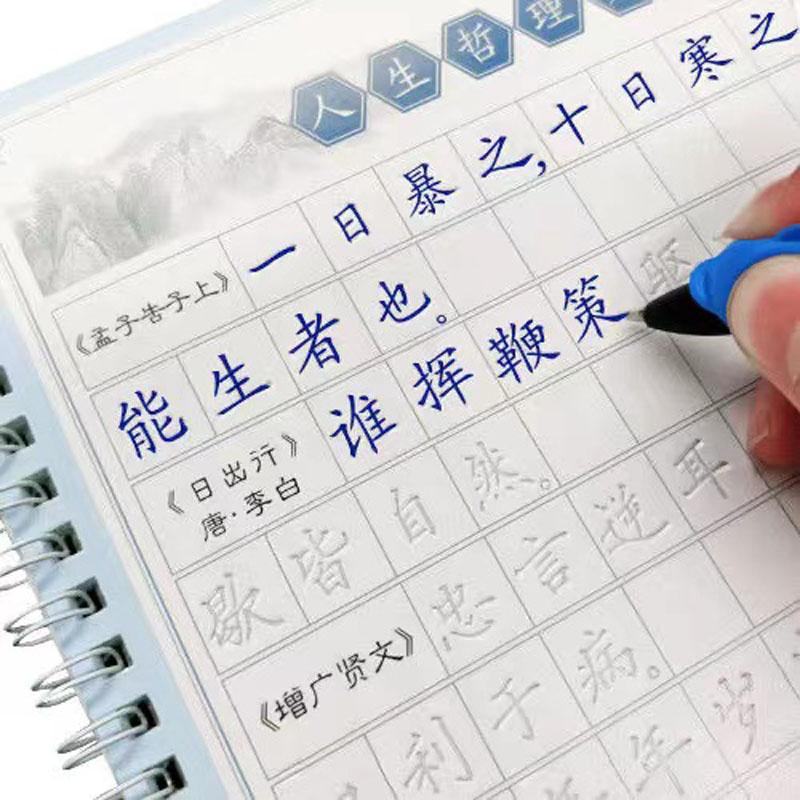 人生哲理
《孟子告子上》 一日暴之,十日寒之
能生者也。
《日出行》 唐·李白 谁挥鞭策驱
歇皆自然。
《增广贤文》 忠言逆耳
利于病。
年岁